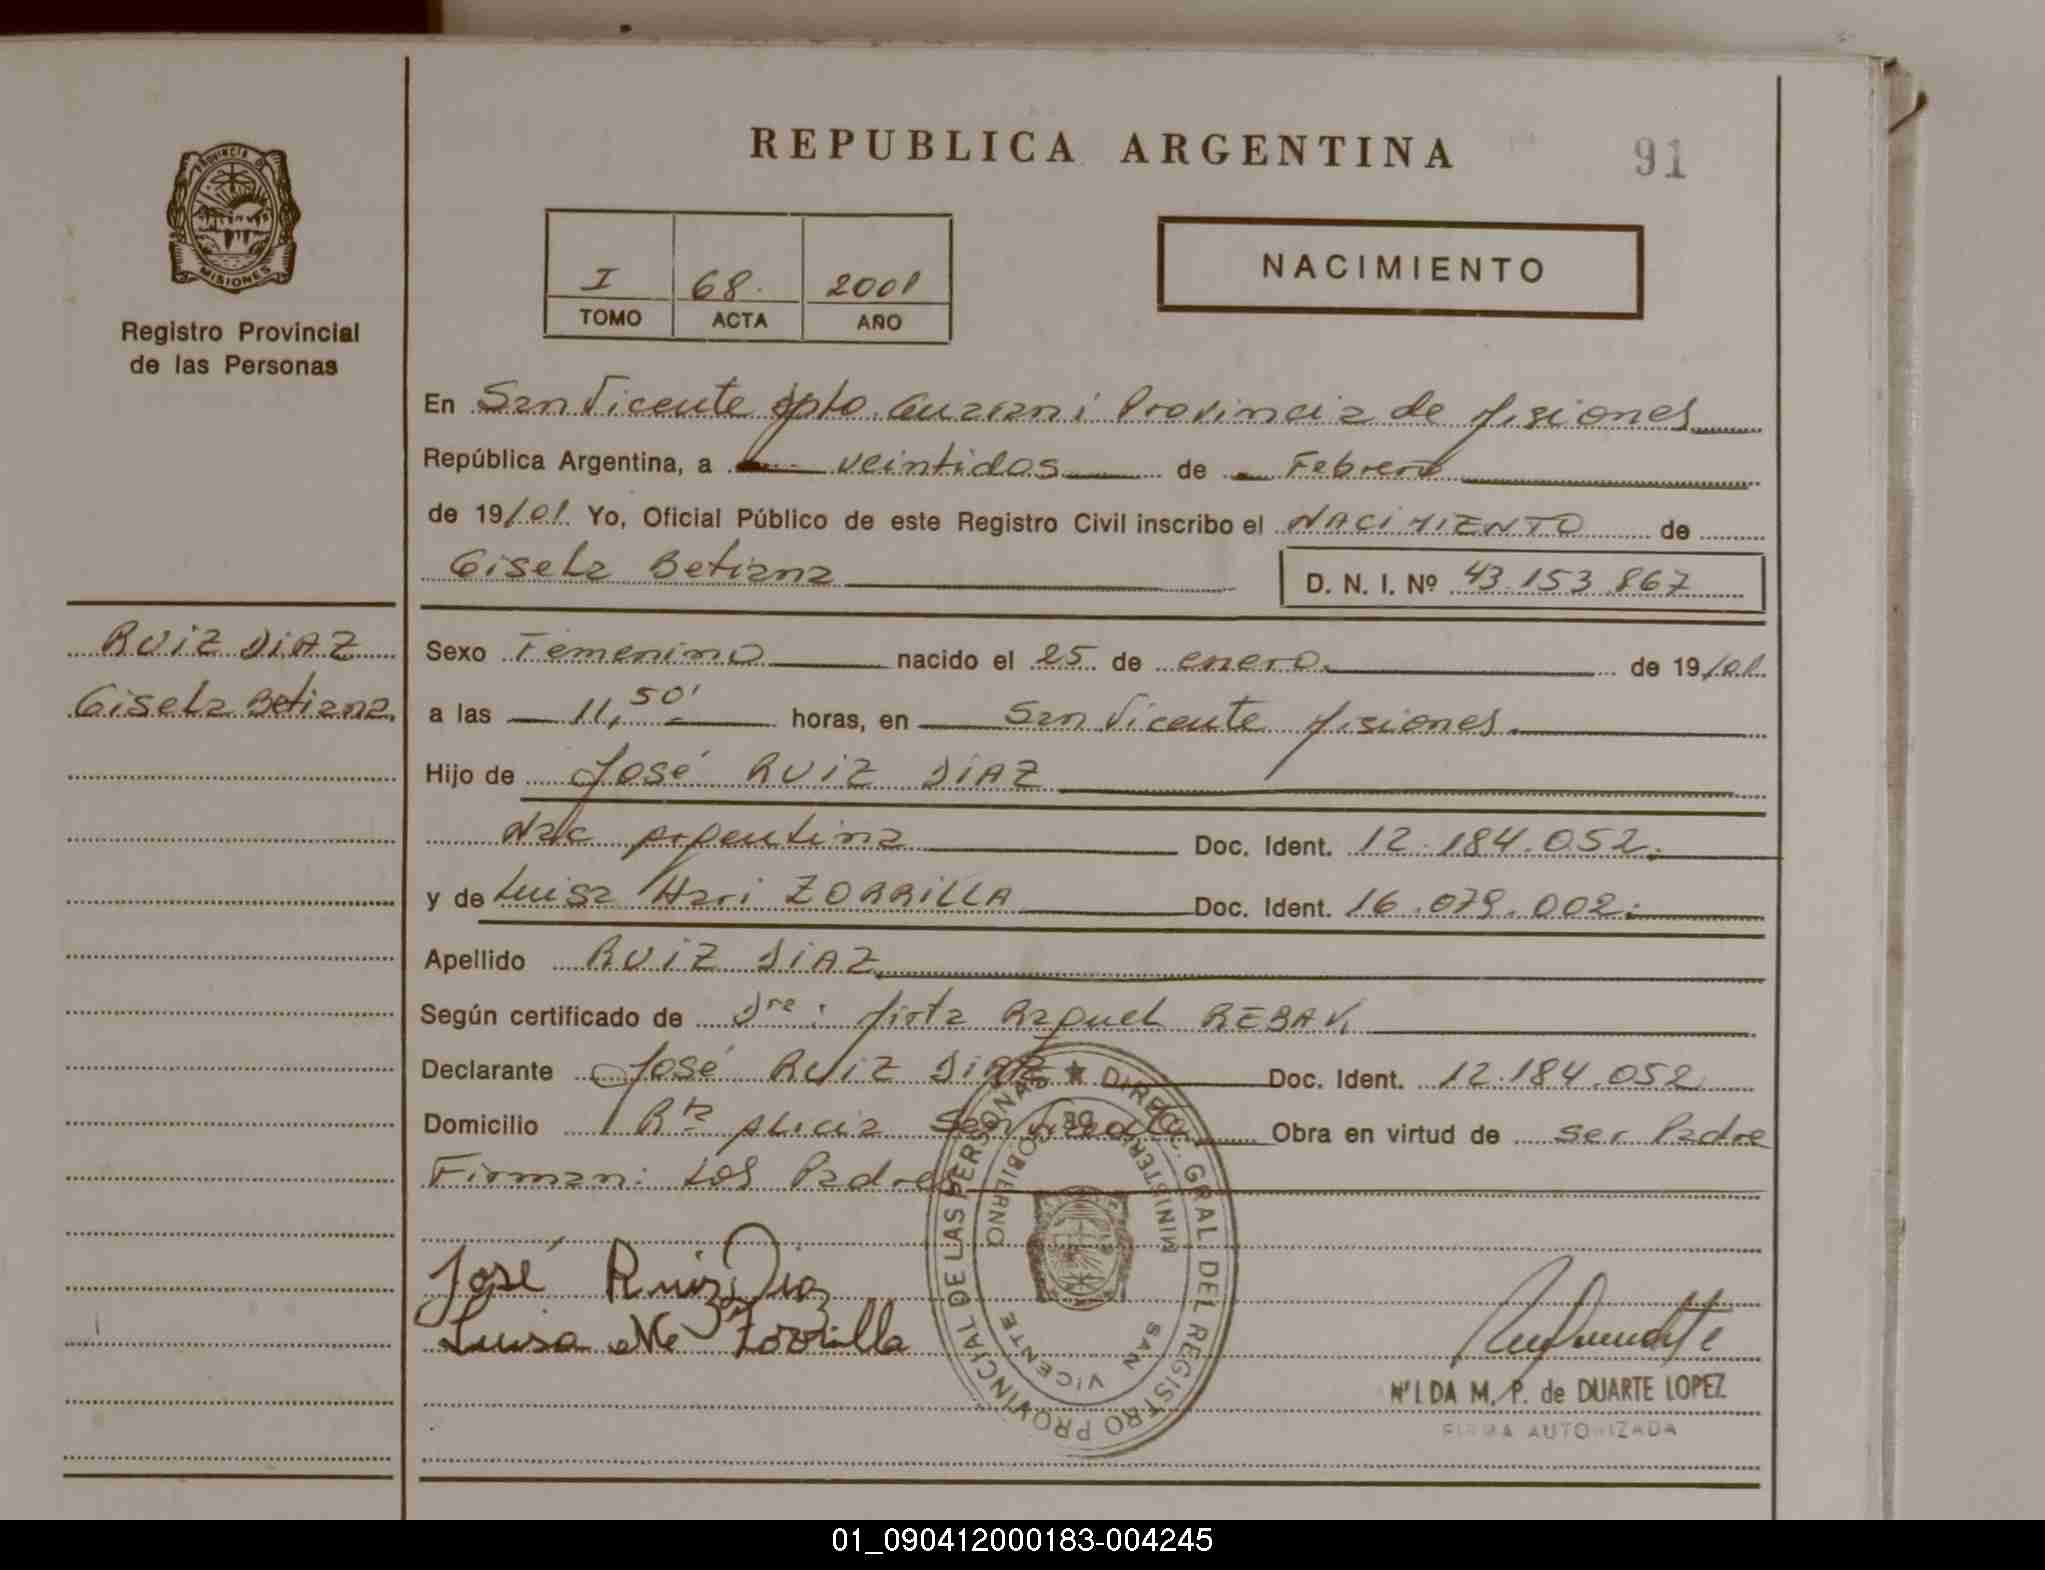 REPUBLICA ARGENTINA
91
PROVINCIA DE
MISIONES
Registro Provincial
de las Personas
I 68. 2001
TOMO ACTA AÑO
NACIMIENTO
En San Vicente dpto. Guaraní Provincia de Misiones
República Argentina, a veintidos de Febrero
de 19/01. Yo, Oficial Público de este Registro Civil inscribo el NACIMIENTO de
Gisela Betiana D. N. I. Nº 43.153.867
RUIZ DIAZ
Gisela Betiana
Sexo Femenino nacido el 25 de enero de 19/01
a las 11,50' horas, en San Vicente Misiones
Hijo de José RUIZ DIAZ
Nac Argentina Doc. Ident. 12.184.052.
y de Luisa Mari ZORRILLA Doc. Ident. 16.079.002.
Apellido RUIZ DIAZ
Según certificado de Dra: Mirta Raquel
Declarante José RUIZ DIAZ Doc. Ident. 12.184.052
Domicilio Pto Alicia San Vicente Obra en virtud de ser Padre
Firman: Los Padres
José Ruiz Diaz
Luisa Me Zorrilla
DIREC. GRAL DEL REGISTRO PROVINCIAL DE LAS PERSONAS
MINISTERIO DE GOBIERNO
SAN VICENTE
NILDA M. P. de DUARTE LOPEZ
FIRMA AUTORIZADA
01_090412000183-004245